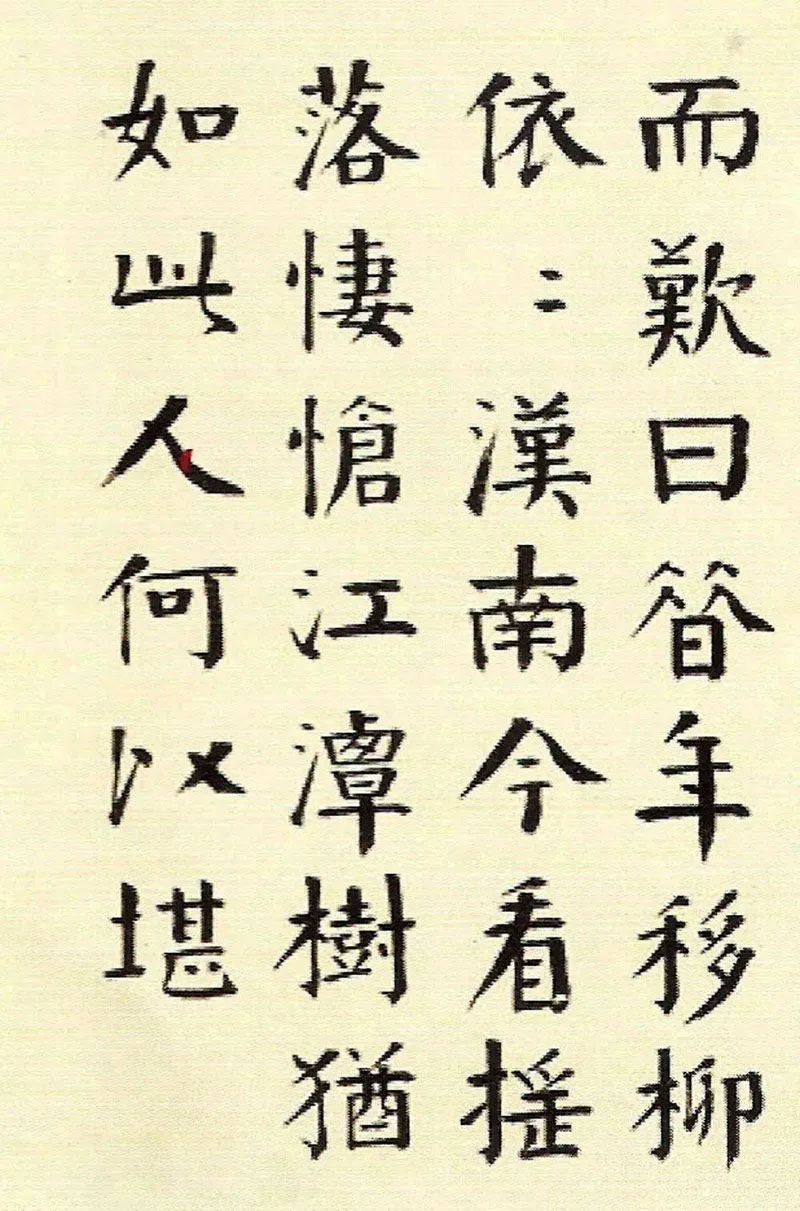 而歎曰昔年移柳
依〻漢南今看摇
落悽愴江潭樹猶
如此人何以堪